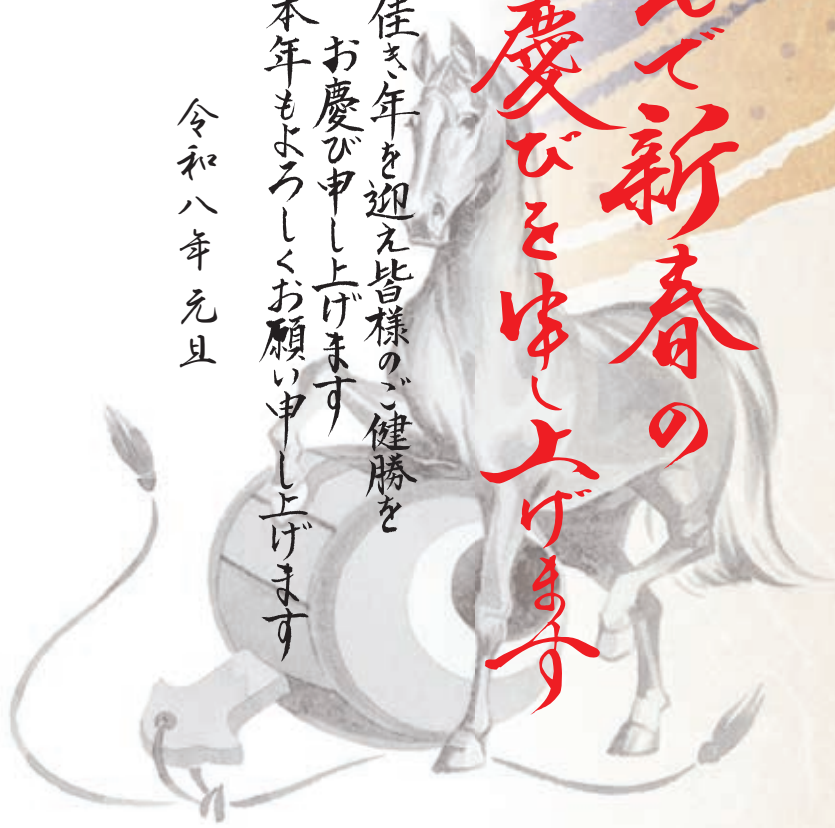 んで新春の
慶びを申し上げます
佳き年を迎え皆様のご健勝を
お慶び申し上げます
本年もよろしくお願い申し上げます
令和八年元旦